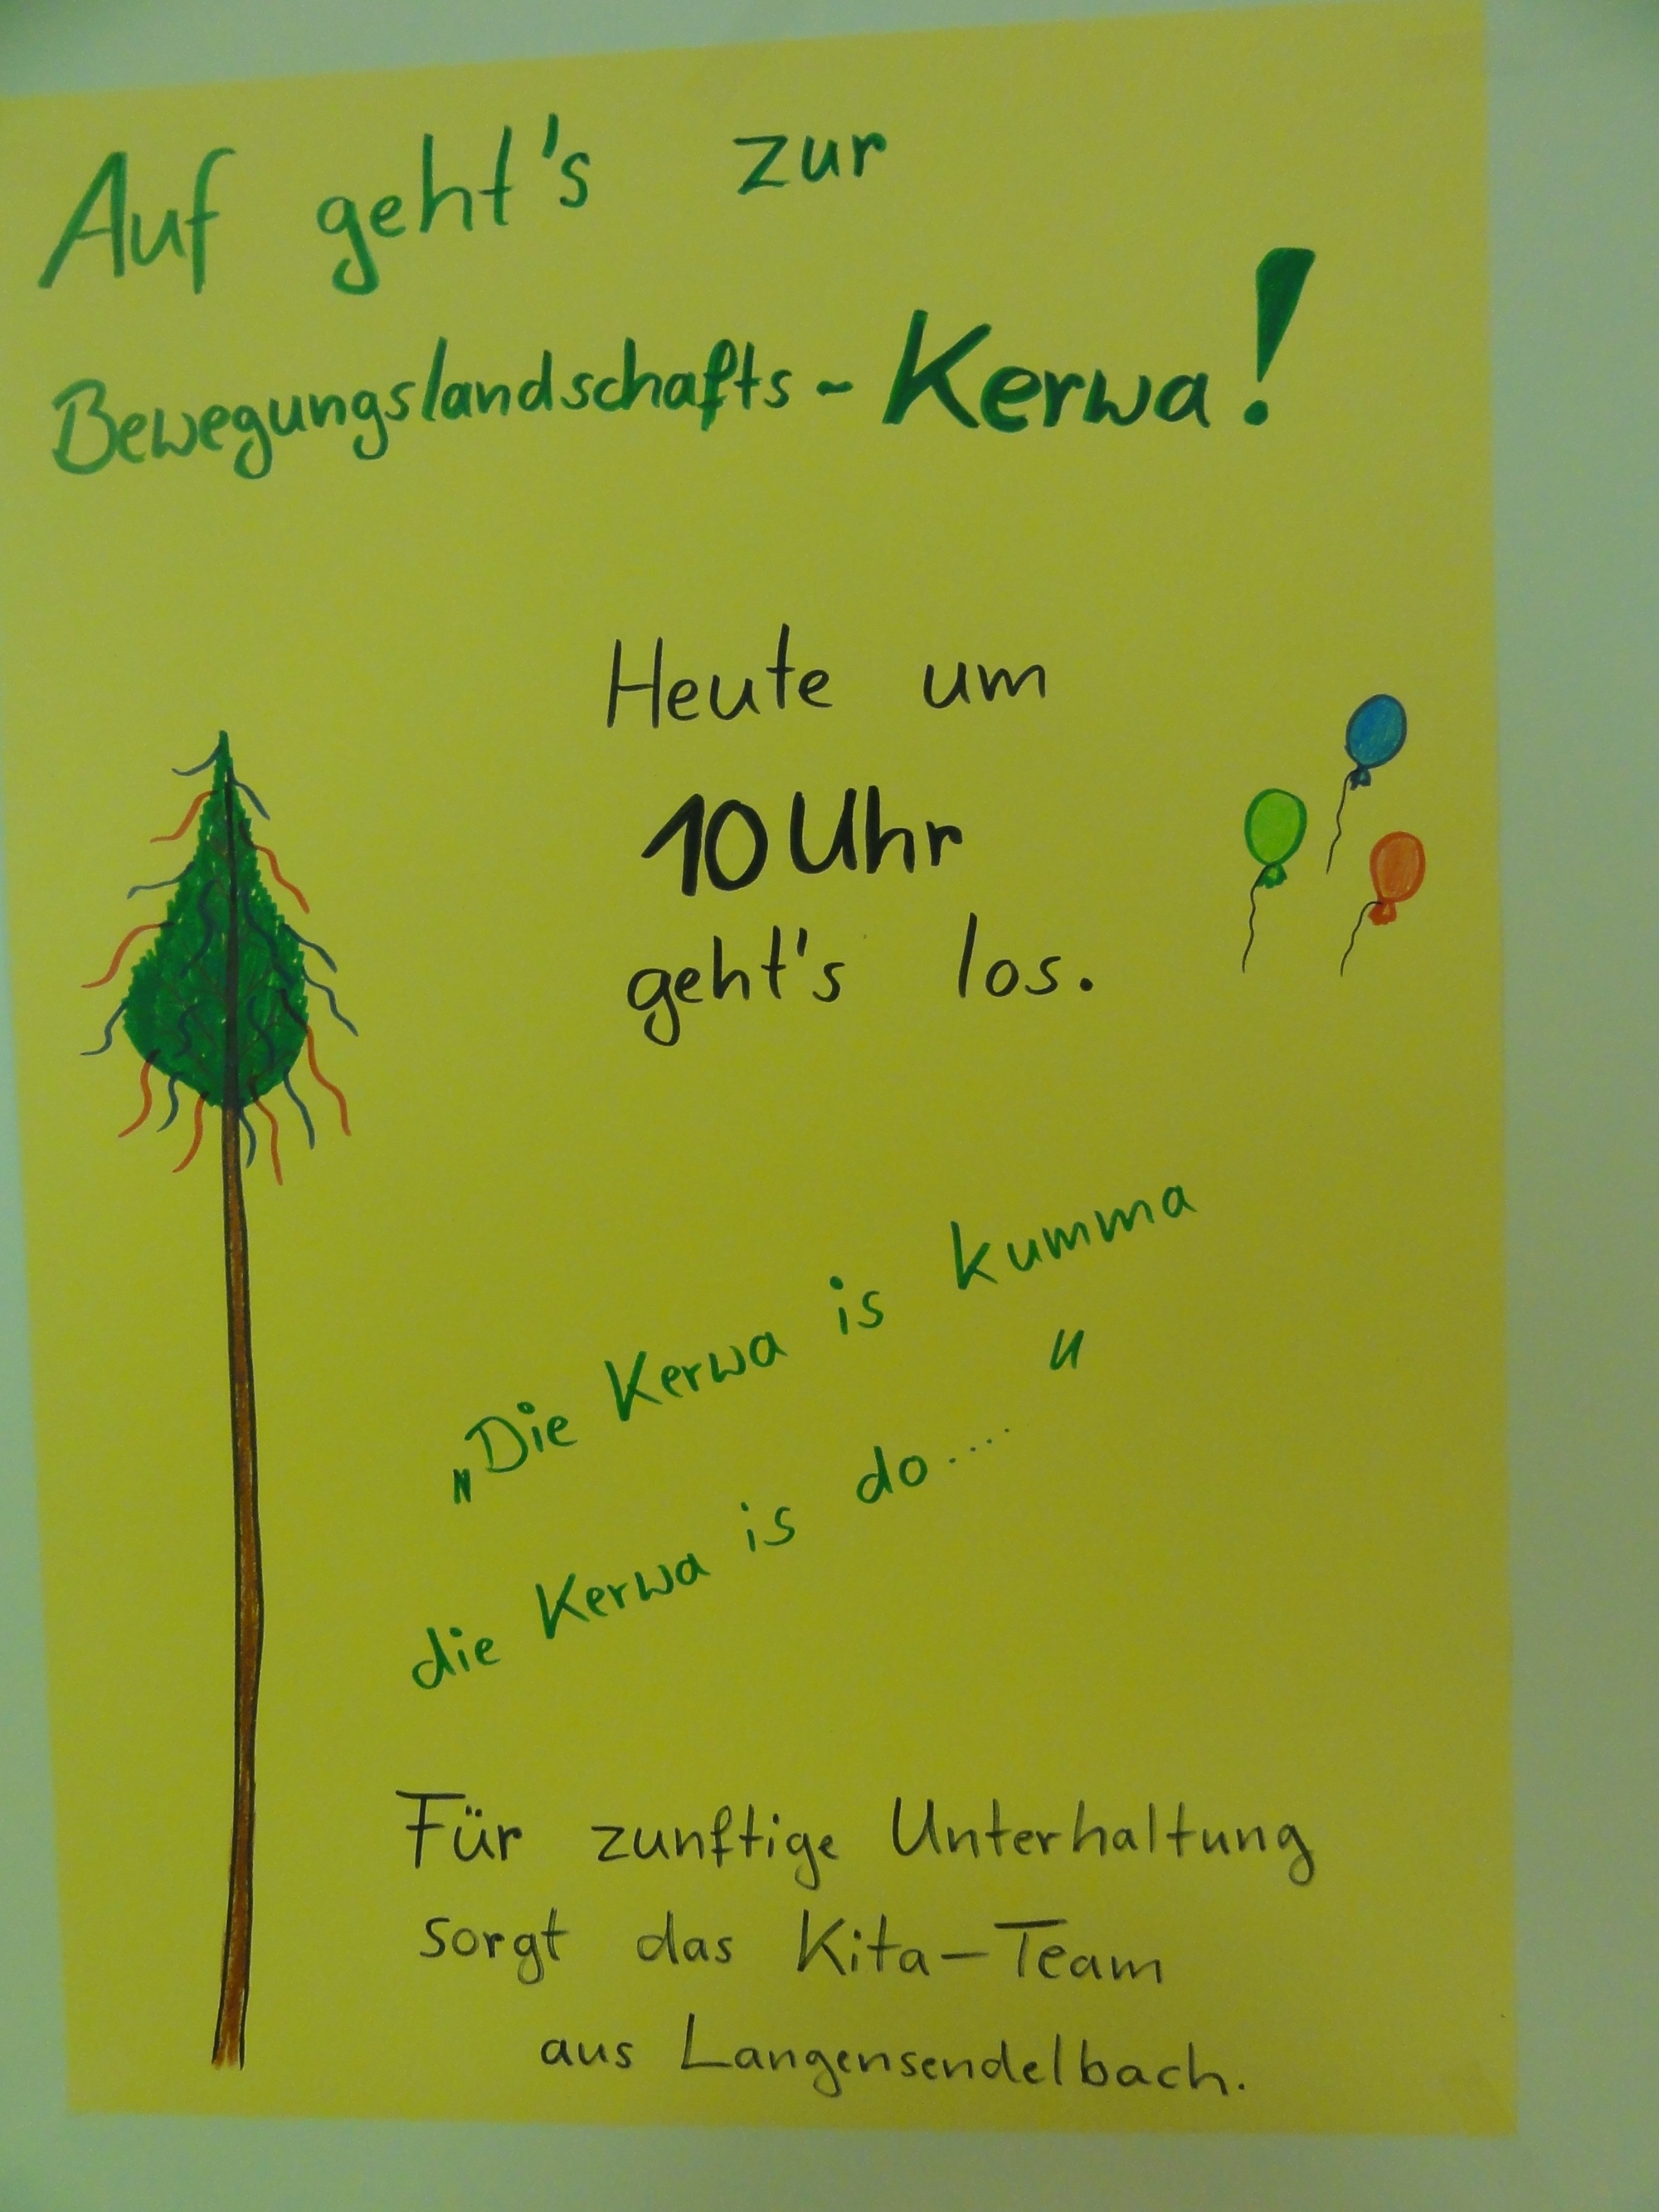 Auf geht's zur
Bewegungslandschafts-Kerwa!
Heute um
10 Uhr
geht's los.
„Die Kerwa is kumma
die Kerwa is do....."
Für zunftige Unterhaltung
sorgt das Kita-Team
aus Langensendelbach.